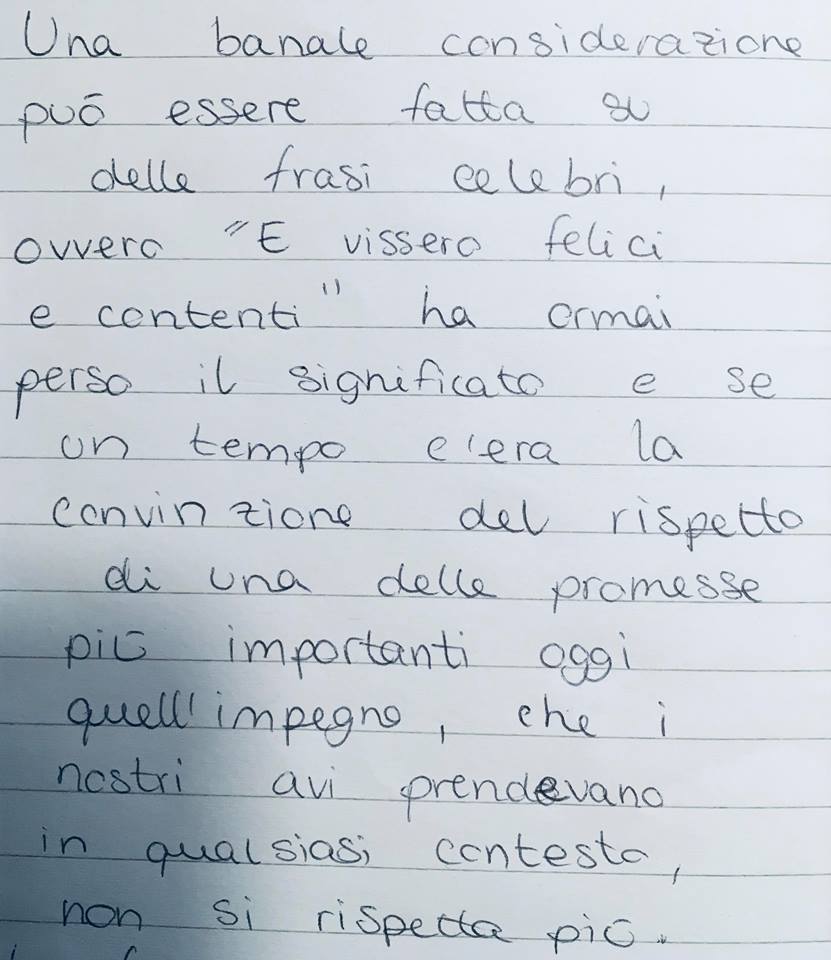 Una banale considerazione
può essere fatta su
delle frasi celebri,
ovvero "E vissero felici
e contenti" ha ormai
perso il significato e se
un tempo c'era la
convinzione del rispetto
di una delle promesse
più importanti oggi
quell'impegno, che i
nostri avi prendevano
in qualsiasi contesto,
non si rispetta più.